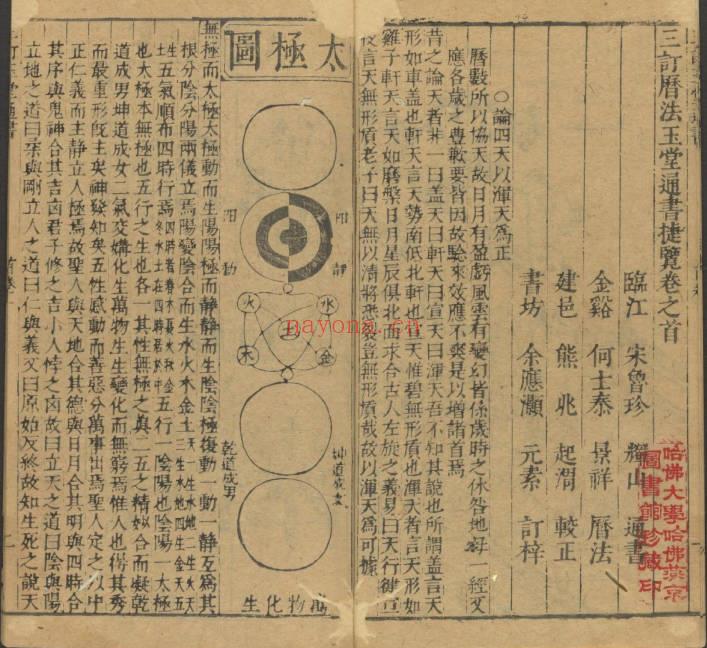 三訂曆法玉堂通書捷覽卷之首
臨江 宋魯珍 輝山 通書
金谿 何士泰 景祥 曆法
建邑 熊 兆 起渭 較正
書坊 余應灝 元素 訂梓
○論四天以渾天為正
曆數所以協天故日月有盈虧風雲有變幻皆係歲時之休咎地 一經
應各歲之豐歉要皆因故驗來效應不爽是以增諸首焉
昔之論天者非一曰盖天曰軒天曰宣天曰渾天吾不知其說也所謂盖言天
形如車盖也軒天言天勢南低北軒也宣天惟碧無形質也渾天者言天形如
雞子軒天言天如磨槃日月星辰俱北面求合古人左旋之義易曰天行健宣
夜言天無形質老子曰天無以清將恐裂豈無形質哉故以渾天為可據
哈佛大學哈佛燕京
圖書館珍藏印
太極圖
陽動
陰靜
火
水
土
木
金
坤道成女
乾道成男
萬物化生
無極而太極太極動而生陽陽極而靜靜而生陰陰極復動一動一靜互為其
根分陰分陽兩儀立焉陽變陰合而生水火木金土天一生水地二生火天三生木地四生金天五生土
五氣順布四時行焉四時者春木夏火秋金冬水土在四時 中五行一陰陽也陰陽一太極
也太極本無極也五行之生也各一其性無極之真二五之精妙合而凝乾
道成男坤道成女二氣交媾化生萬物生生變化而無窮焉惟人也得其秀
而最靈形既生矣神發知矣五性感動而善惡分萬事出焉聖人定之以中
正仁義而主靜立人極焉故聖人與天地合其德與日月合其明與四時合
其序與鬼神合其吉凶君子修之吉小人悖之凶故曰立天之道曰陰與陽
立地之道曰柔與剛立人之道曰仁與義又曰原始反終故知生死之說天
nayona.cn